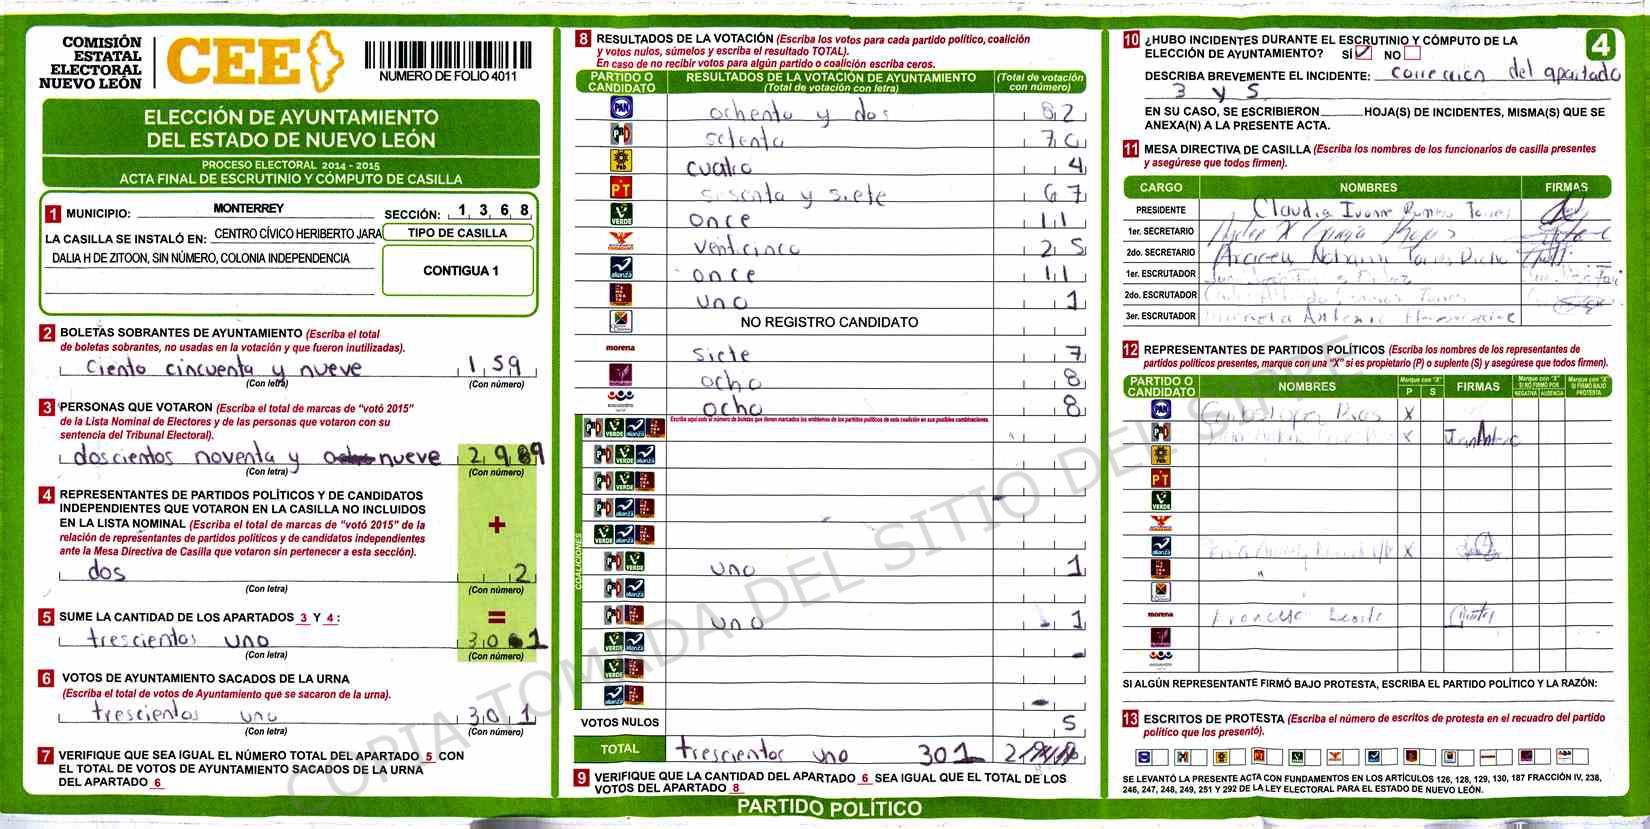 COMISIÓN
ESTATAL
ELECTORAL
NUEVO LEÓN
CEE
NUMERO DE FOLIO 4011
ELECCIÓN DE AYUNTAMIENTO
DEL ESTADO DE NUEVO LEÓN
PROCESO ELECTORAL 2014 - 2015
ACTA FINAL DE ESCRUTINIO Y CÓMPUTO DE CASILLA
1 MUNICIPIO: MONTERREY SECCIÓN: 1 3 6 8
LA CASILLA SE INSTALÓ EN: CENTRO CÍVICO HERIBERTO JARA
TIPO DE CASILLA
DALIA H DE ZITOON, SIN NÚMERO, COLONIA INDEPENDENCIA
CONTIGUA 1
2 BOLETAS SOBRANTES DE AYUNTAMIENTO (Escriba el total
de boletas sobrantes, no usadas en la votación y que fueron inutilizadas).
ciento cincuenta y nueve 159
(Con letra) (Con número)
3 PERSONAS QUE VOTARON (Escriba el total de marcas de "votó 2015"
de la Lista Nominal de Electores y de las personas que votaron con su
sentencia del Tribunal Electoral).
doscientos noventa y nueve 299
(Con letra) (Con número)
4 REPRESENTANTES DE PARTIDOS POLÍTICOS Y DE CANDIDATOS
INDEPENDIENTES QUE VOTARON EN LA CASILLA NO INCLUIDOS
EN LA LISTA NOMINAL (Escriba el total de marcas de "votó 2015" de la
relación de representantes de partidos políticos y de candidatos independientes
ante la Mesa Directiva de Casilla que votaron sin pertenecer a esta sección).
+
dos 2
(Con letra) (Con número)
5 SUME LA CANTIDAD DE LOS APARTADOS 3 Y 4:
=
trescientos uno 301
(Con letra) (Con número)
6 VOTOS DE AYUNTAMIENTO SACADOS DE LA URNA
(Escriba el total de votos de Ayuntamiento que se sacaron de la urna).
trescientos uno 301
(Con letra) (Con número)
7 VERIFIQUE QUE SEA IGUAL EL NÚMERO TOTAL DEL APARTADO 5 CON
EL TOTAL DE VOTOS DE AYUNTAMIENTO SACADOS DE LA URNA
DEL APARTADO 6
8 RESULTADOS DE LA VOTACIÓN (Escriba los votos para cada partido político, coalición
y votos nulos, súmelos y escriba el resultado TOTAL).
En caso de no recibir votos para algún partido o coalición escriba ceros.
PARTIDO O CANDIDATO
RESULTADOS DE LA VOTACIÓN DE AYUNTAMIENTO
(Total de votación con letra)
(Total de votación con número)
PAN ochenta y dos 82
PRI setenta 70
PRD cuatro 4
PT sesenta y siete 67
VERDE once 11
venticinco 25
alianza once 11
uno 1
NO REGISTRO CANDIDATO
morena siete 7
ocho 8
ocho 8
Escriba aquí solo el número de boletas que tienen marcados los emblemas de los partidos políticos de esta coalición en sus posibles combinaciones.
COALICIONES
PRI VERDE alianza
PRI VERDE alianza
PRI VERDE
PRI alianza
VERDE alianza
PRI VERDE uno 1
PRI alianza
PRI uno 1
VERDE alianza
VERDE
alianza
VOTOS NULOS 5
TOTAL trescientos uno 301
9 VERIFIQUE QUE LA CANTIDAD DEL APARTADO 6 SEA IGUAL QUE EL TOTAL DE LOS
VOTOS DEL APARTADO 8
PARTIDO POLÍTICO
10 ¿HUBO INCIDENTES DURANTE EL ESCRUTINIO Y CÓMPUTO DE LA
ELECCIÓN DE AYUNTAMIENTO? SÍ NO
4
DESCRIBA BREVEMENTE EL INCIDENTE: correccion del apartado
3 y 5
EN SU CASO, SE ESCRIBIERON HOJA(S) DE INCIDENTES, MISMA(S) QUE SE
ANEXA(N) A LA PRESENTE ACTA.
11 MESA DIRECTIVA DE CASILLA (Escriba los nombres de los funcionarios de casilla presentes
y asegúrese que todos firmen).
CARGO NOMBRES FIRMAS
PRESIDENTE Claudia Ivonne Romero Torres
1er. SECRETARIO
2do. SECRETARIO Araceli
1er. ESCRUTADOR
2do. ESCRUTADOR
3er. ESCRUTADOR Antonio
12 REPRESENTANTES DE PARTIDOS POLÍTICOS (Escriba los nombres de los representantes de
partidos políticos presentes, marque con una "X" si es propietario (P) o suplente (S) y asegúrese que todos firmen).
PARTIDO O CANDIDATO NOMBRES Marque con "X" P S FIRMAS Marque con "X" SI NO FIRMÓ POR NEGATIVA AUSENCIA Marque con "X" SI FIRMÓ BAJO PROTESTA
PAN X
PRI X
PRD
PT
VERDE
alianza X
morena
SI ALGÚN REPRESENTANTE FIRMÓ BAJO PROTESTA, ESCRIBA EL PARTIDO POLÍTICO Y LA RAZÓN:
13 ESCRITOS DE PROTESTA (Escriba el número de escritos de protesta en el recuadro del partido
político que los presentó).
SE LEVANTÓ LA PRESENTE ACTA CON FUNDAMENTOS EN LOS ARTÍCULOS 126, 128, 129, 130, 187 FRACCIÓN IV, 238,
246, 247, 248, 249, 251 Y 292 DE LA LEY ELECTORAL PARA EL ESTADO DE NUEVO LEÓN.
COPIA TOMADA DEL SITIO DEL SIPRE